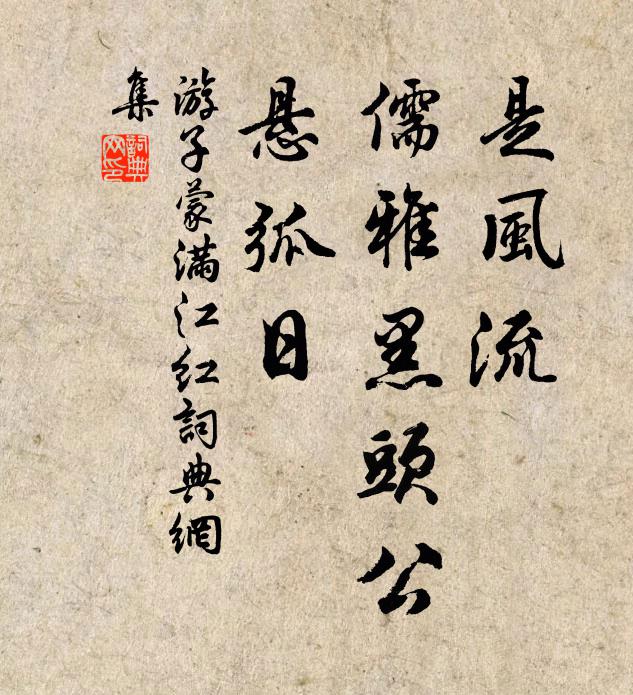 是風流
儒雅黑頭公
悬孤日
游子蒙满江红詞典網
集
詞典
网印